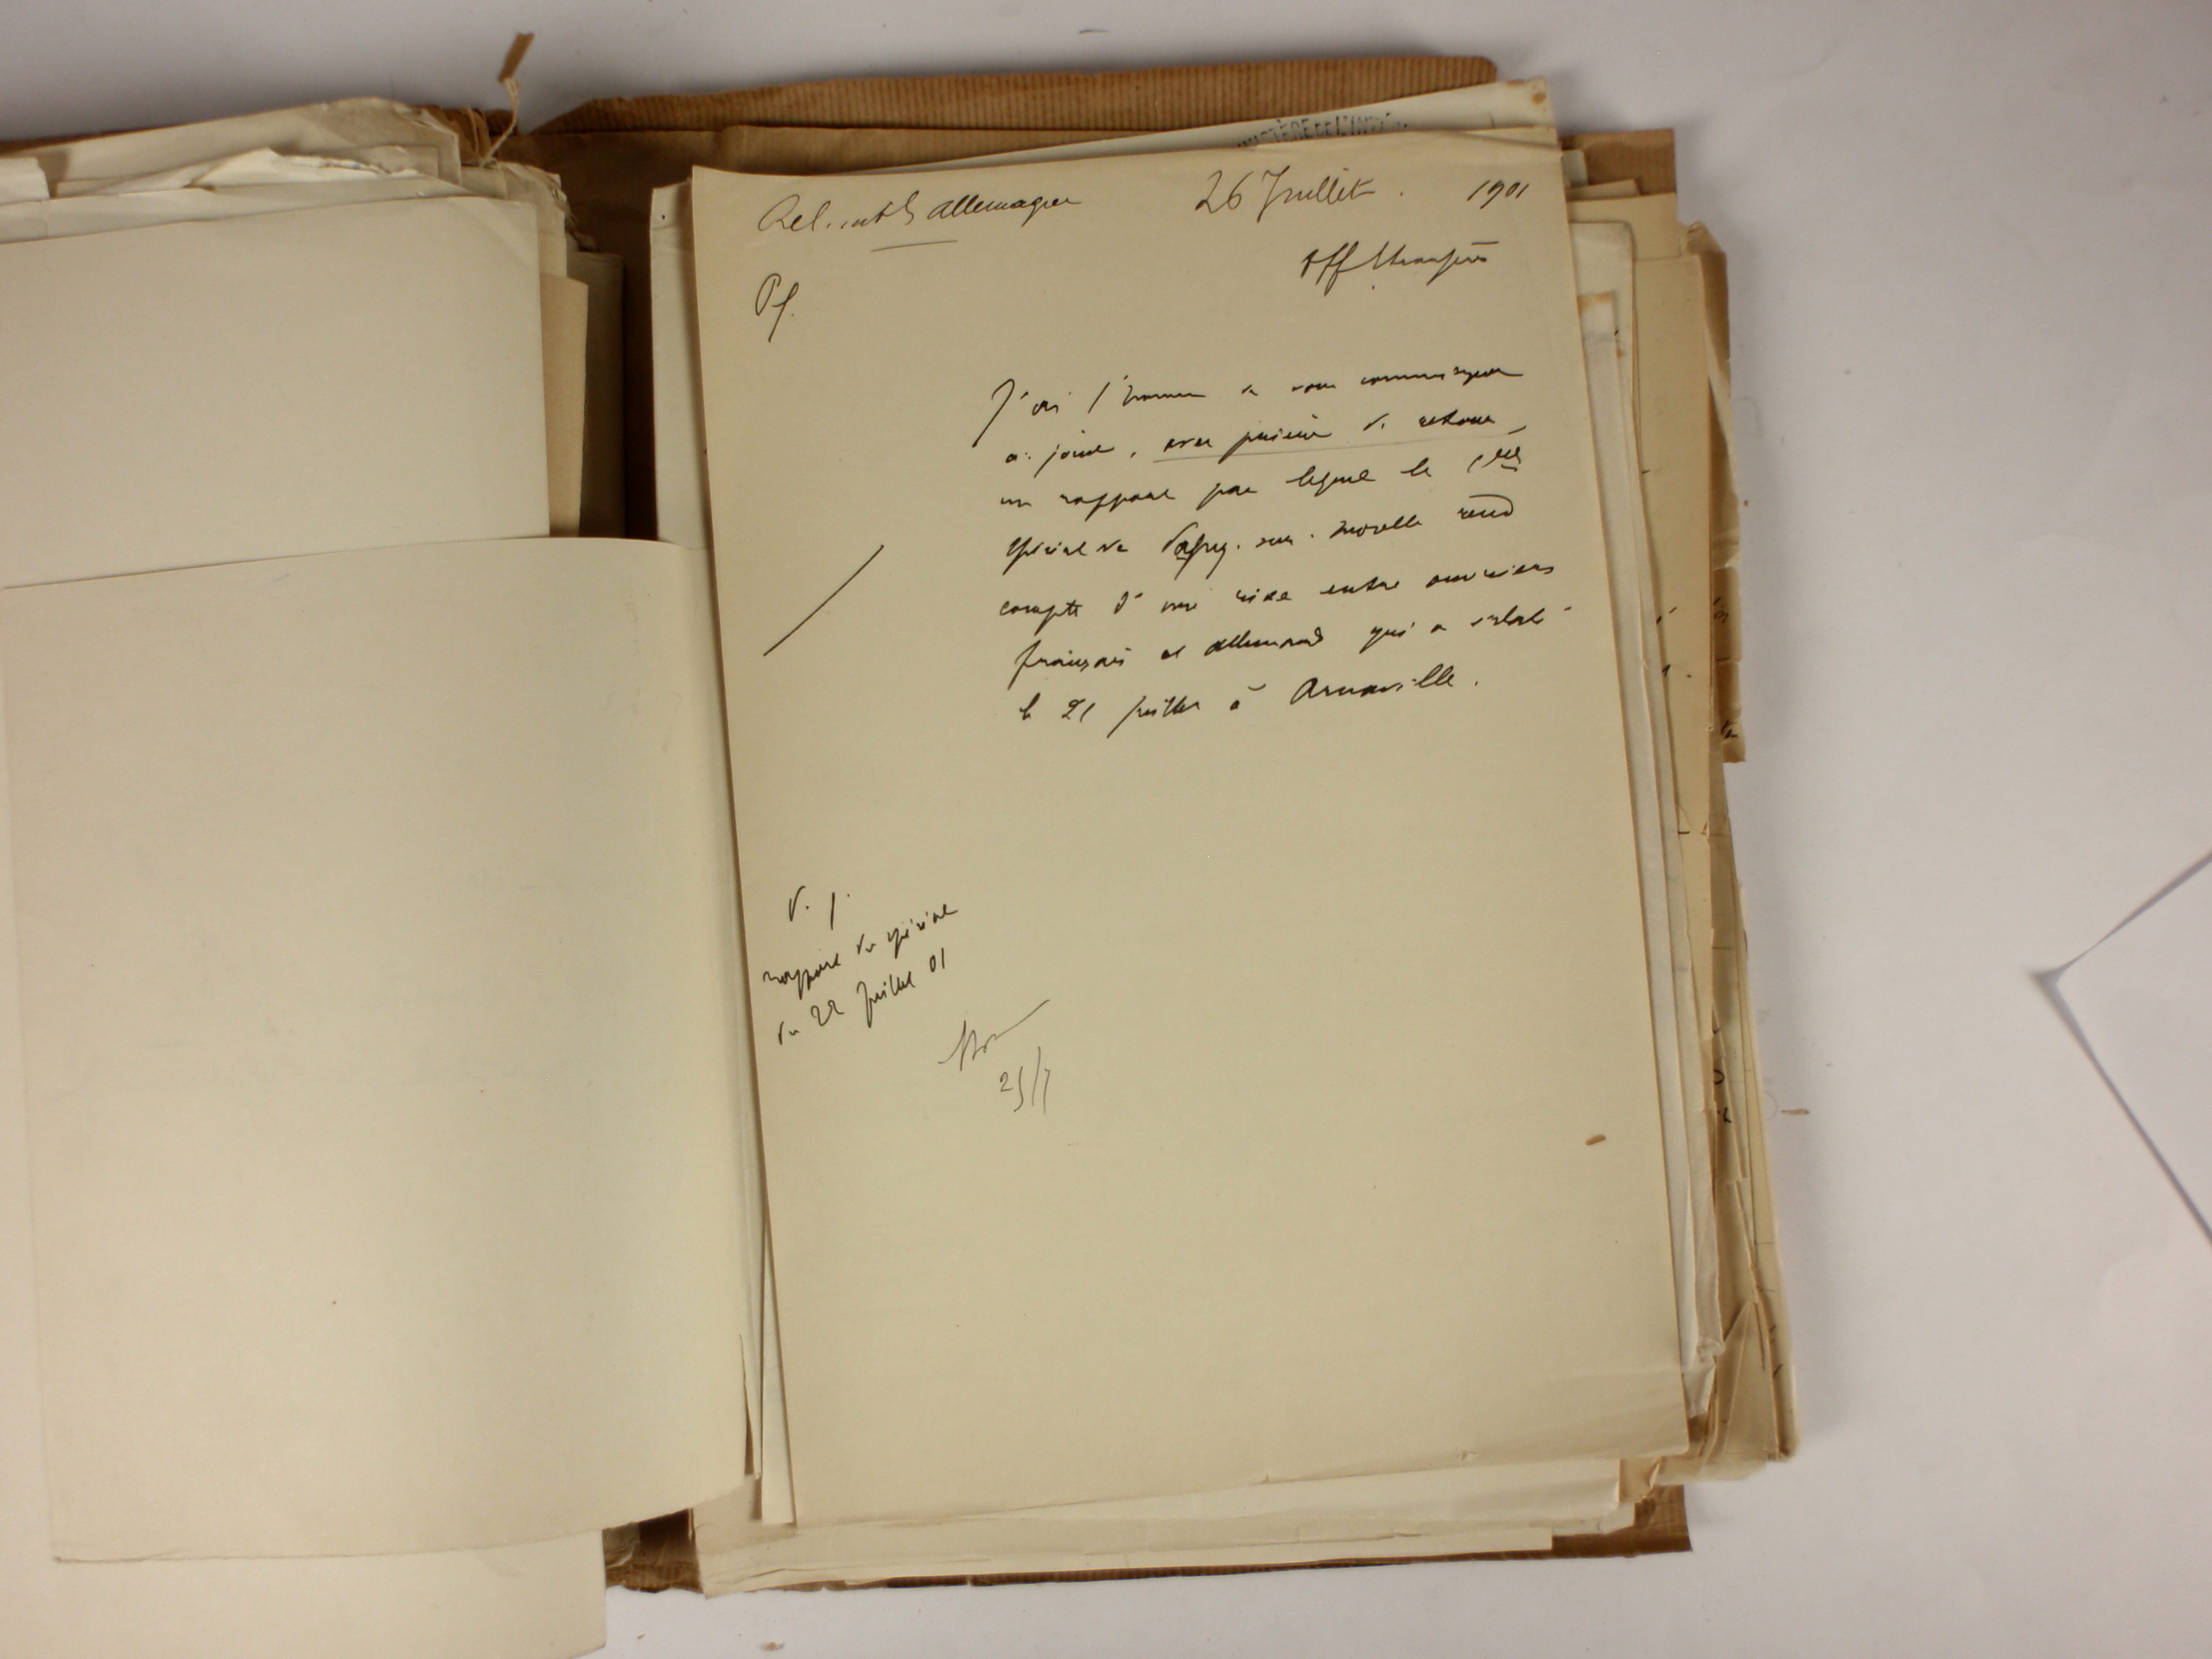 MINISTÈRE DE L'INTÉ
Rel. int les allemagne
26 Juillet 1901
Aff Etrangères
Pf.
J'ai l'honneur de vous communiquer
ci-joint, avec prière de retour,
un rapport par lequel le Cre
spécial de Pagny-sur-Moselle rend
compte d'une rixe entre ouvriers
français et allemands qui a éclaté
le 21 juillet à Arnaville.
P. J.
rapport du spécial
du 22 Juillet 01
25/7